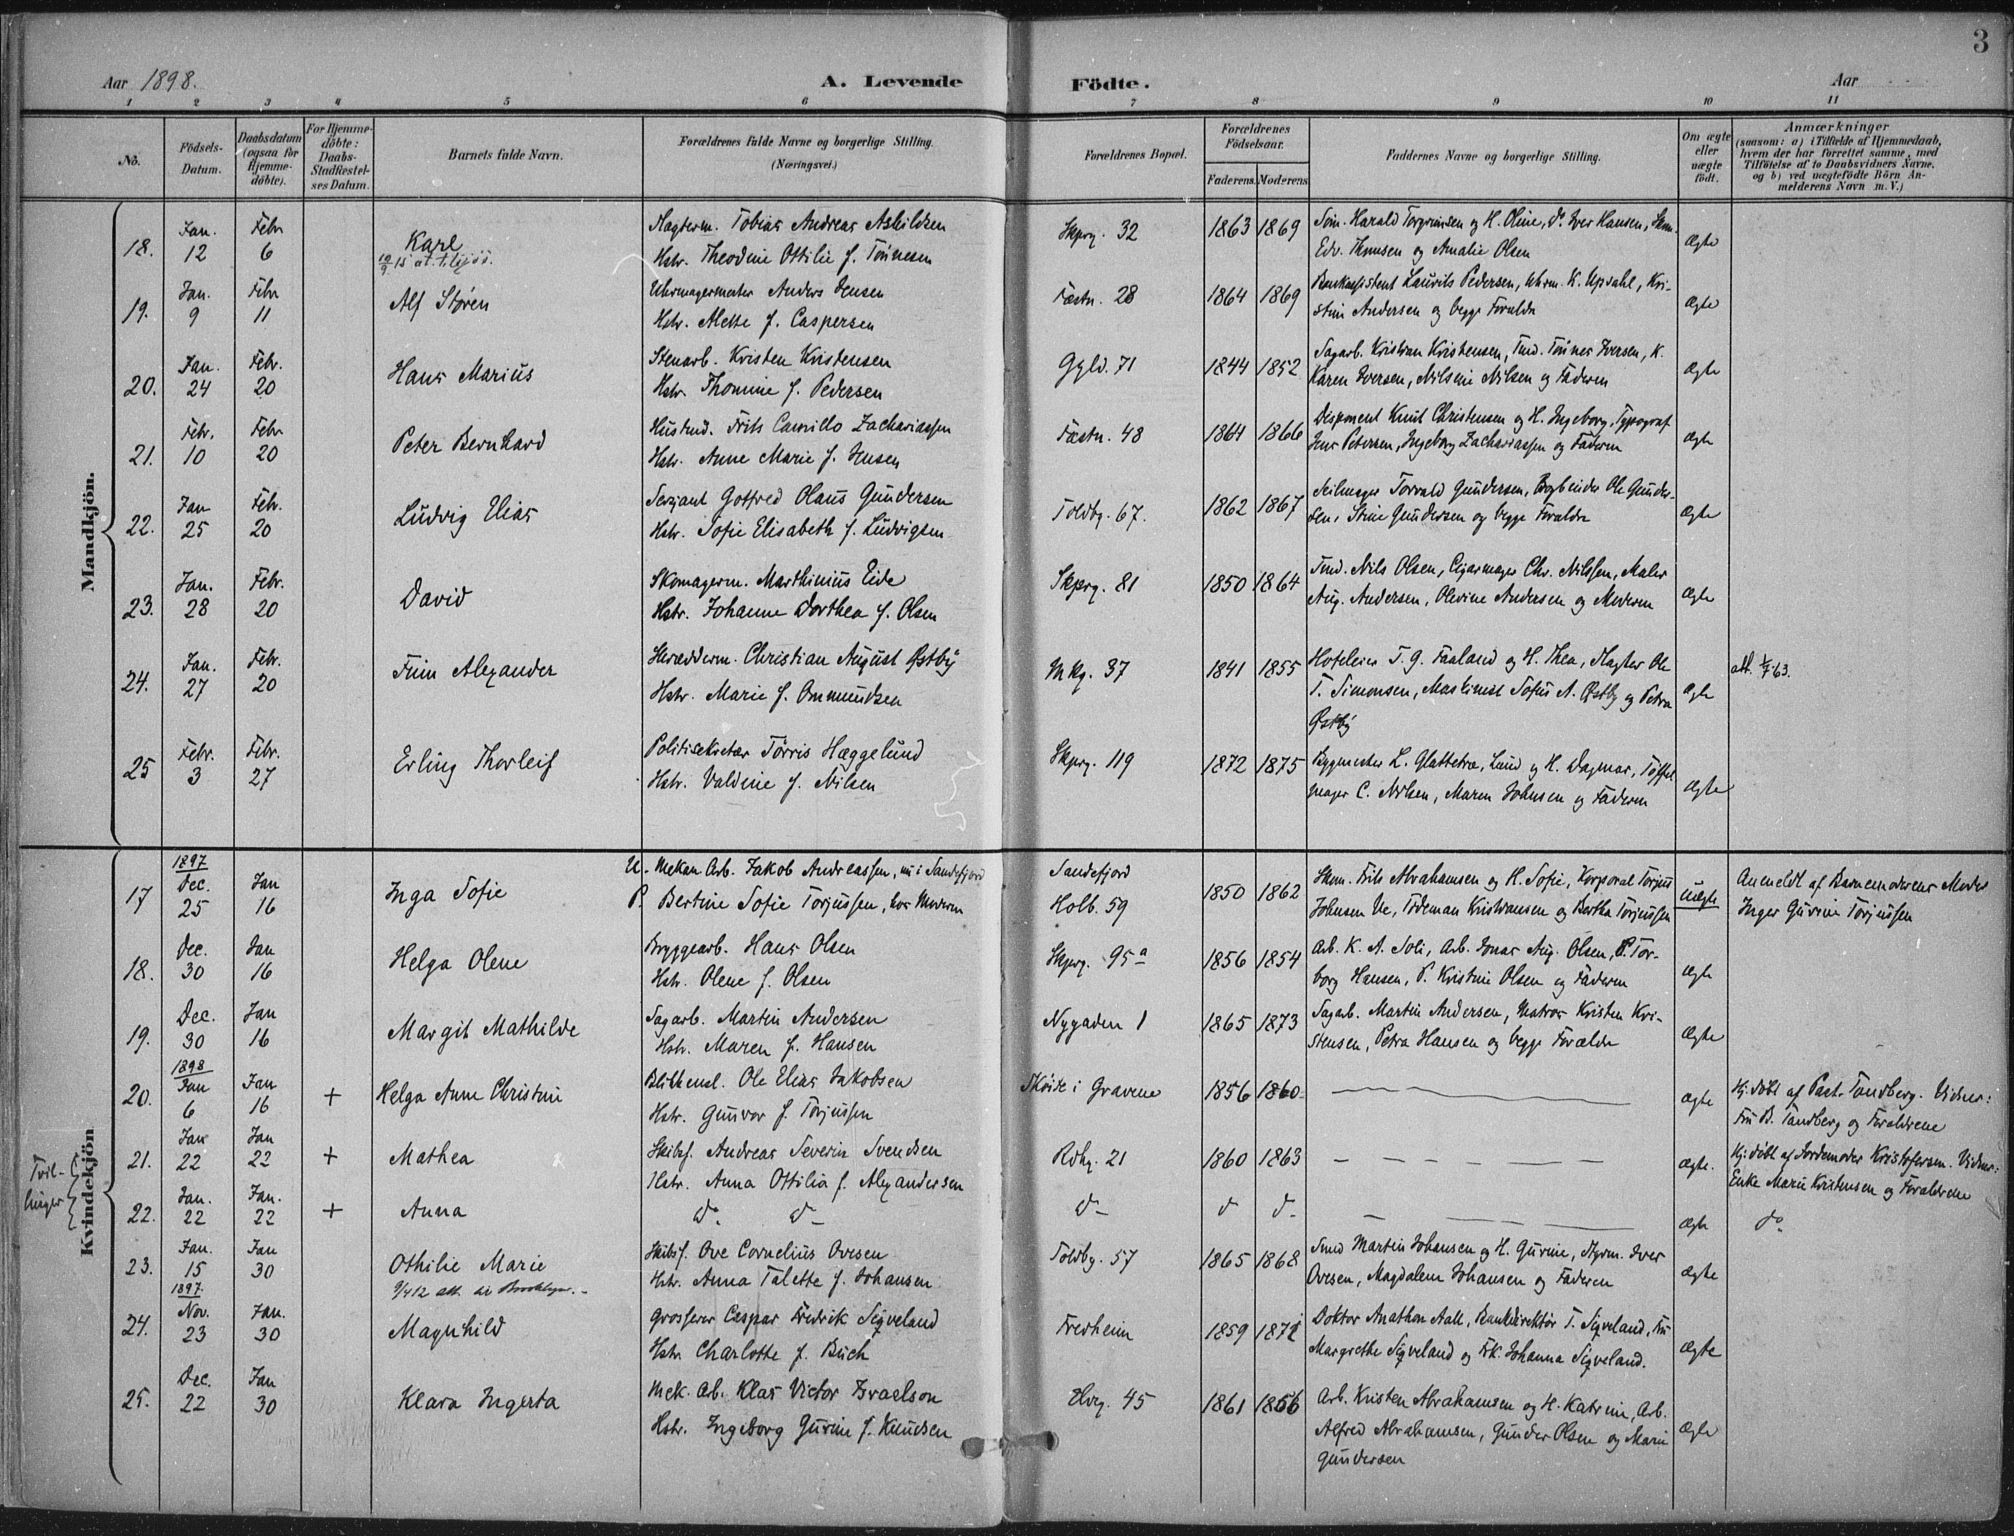 3
Aar 1898. A. Levende Födte. Aar
1 2 3 4 5 6 7 8 9 10 11
No. Födsels-Datum. Daabsdatum (ogsaa for Hjemme-döbte). For Hjemme-döbte: Daabs-Stadfæstel-ses Datum. Barnets fulde Navn. Forældrenes fulde Navne og borgerlige Stilling. (Næringsvei.) Forældrenes Bopæl. Forældrenes Födselsaar. Faderens. Moderens. Faddernes Navne og borgerlige Stilling. Om ægte eller uægte födt. Anmærkninger (saasom: a) (Tilfælde af Hjemmedaab, hvem der har forrettet samme, med Tilföielse af to Daabsvidners Navne, og b) ved uægtefödte Börn An-melderens Navn m. V.)
Mandkjön.
18. Jan. 12 Febr 6 Karl Slagterm. Tobias Andreas Askildsen Skprg. 32 1863 1869 Søm. Harald Torgrimsen og H. Oline, do Iver Hansen, Skom. ægte
Hstr. Theodine Ottilie f. Tönnesen Edv. Thomsen og Amalie Olsen
19. Jan. 9 Febr 11 Alf Sören Uhrmagermester Anders Jensen Fæstn. 28 1864 1869 Bankassistent Laurits Pedersen, Uhrm. K. Upsahl, Kri- ægte
Hstr. Alette f. Caspersen stine Andersen og begge Forældre
20. Jan. 24 Febr. 20 Hans Marius Stenarb. Kristen Kristensen Ggld. 71 1844 1852 Sagarb. Kristian Kristensen, Tmd. Tönnes Iversen, K. ægte
Hstr. Thomine f. Pedersen Karen Iversen, Nilsine Nilsen og Faderen
21. Febr. 10 Febr 20 Peter Bernhard Hustmd. Frits Camillo Zachariassen Fæstn. 48 1864 1866 Disponent Knut Christensen og H. Ingeborg, Typograf ægte
Hstr. Anne Marie f. Jensen Jens Petersen, Ingeborg Zachariassen og Faderen
22. Jan 25 Febr. 20 Ludvig Elias Serjant Gotfred Olaus Gundersen Toldbg. 67. 1862 1867 Seilmager Torvald Gundersen, Bogbinder Ole Gunder- ægte
Hstr. Sofie Elisabeth f. Ludvigsen sen, Stine Gundersen og begge Forældre
23. Jan. 28 Febr. 20 David Skomagerm. Marthinius Eide Skprg. 81 1850 1864 Tmd. Nils Olsen, Cigarmager Chr. Nilssen, Maler ægte
Hstr. Johanne Dorthea f. Olsen Aug. Andersen, Olevine Andersen og Moderen
24. Jan. 27 Febr. 20 Finn Alexander Skrædderm. Christian August Østby Mkg. 37 1841 1855 Hoteleier T. G. Faaland og H. Thea, Slagter Ole ægte
Hstr. Marie f. Ommundsen T. Simonsen, Maskinist Sofus A. Østby og Petra
Østby
25 Febr. 3 Febr. 27 Erling Thorleif Politisekretær Törris Hæggelund Skprg. 119 1872 1875 Bygmester L. Glattetre, Lund og H. Dagmar, Töffel ægte
Hstr. Valdine f. Nilsen mager C. Nilsen, Maren Johnsen og Faderen
Kvindekjön
17 1897 Dec. 25 Jan 16 Inga Sofie U. Mekan. Arb. Jakob Andreassen, nu i Sandefjord Sandefjord 1850 1862 Skom. Frits Abrahamsen og H. Sofie, Korporal Torjus uægte Anmeldt af Barnemoderens Moder
P. Bertine Sofie Torjussen, hos Moderen Holb. 59 Johnsen Ve, Tødeman Kristiansen og Bertha Torjussen Inger Gurine Torjussen
18. Dec. 30 Jan 16 Helga Olene Bryggearb. Hans Olsen Skprg. 95 a 1856 1854 Arb. K. A. Soli, Arb. Jonas Aug. Olsen, P. Tor- ægte
Hstr. Olene f. Olsen borg Hansen, P. Kristine Olsen og Faderen
19. Dec. 30 Jan 16 Margit Mathilde Sagarb. Martin Andersen Nygaden 1 1865 1873 Sagarb. Martin Andersen, Matros Kristen Kri- ægte
Hstr. Maren f. Hansen stensen, Petra Hansen og begge Forældre
20. 1898 Jan 6 Jan 16 + Helga Anne Christine Blikkensl. Ole Elias Jakobsen i Gravene 1856 1860 ægte Hj. döbt af Past. Tandberg. Vidner:
Hstr. Gunvor f. Torjussen Fru B. Tandberg og Forældrene
Tvil-linger
21. Jan 22 Jan 22 + Mathea Skibsf. Andreas Severin Svendsen Rdhg. 21 1860 1863 ægte. Hj. döbt af Jordemoder Kristofersen. Vidner:
Hstr. Anna Ottilia f. Alexandersen Enke Marie Kristensen og Forældrene
22. Jan. 22 Jan. 22 + Anna do do do do do ægte do
23. Jan. 15 Jan 30 Othilie Marie Skibsf. Ove Cornelius Ovesen Toldbg. 57 1865 1868 Smed Martin Johansen og H. Gurine, Styrm. Iver ægte
9/4 12 att. til Brooklyn. Hstr. Anna Talette f. Johansen Ovesen, Magdalene Johansen og Faderen
24. 1897 Nov. 23 Jan. 30 Magnhild Grosserer Caspar Fredrik Sigveland Fredheim 1859 1872 Doktor Anathon Aall, Bankdirektör T. Sigveland, Fru ægte
Hstr. Charlotte f. Buch Margrethe Sigveland og Frk. Johanna Sigveland.
25. Dec. 22 Jan 30 Klara Ingerta Mek. Arb. Klas Victor Israelson Elvg. 45 1861 1856 Arb. Kristen Abrahamsen og H. Katrine, Arb. ægte
Hstr. Ingeborg Gurine f. Knudsen Alfred Abrahamsen, Gunder Olsen og Marie
Gundersen